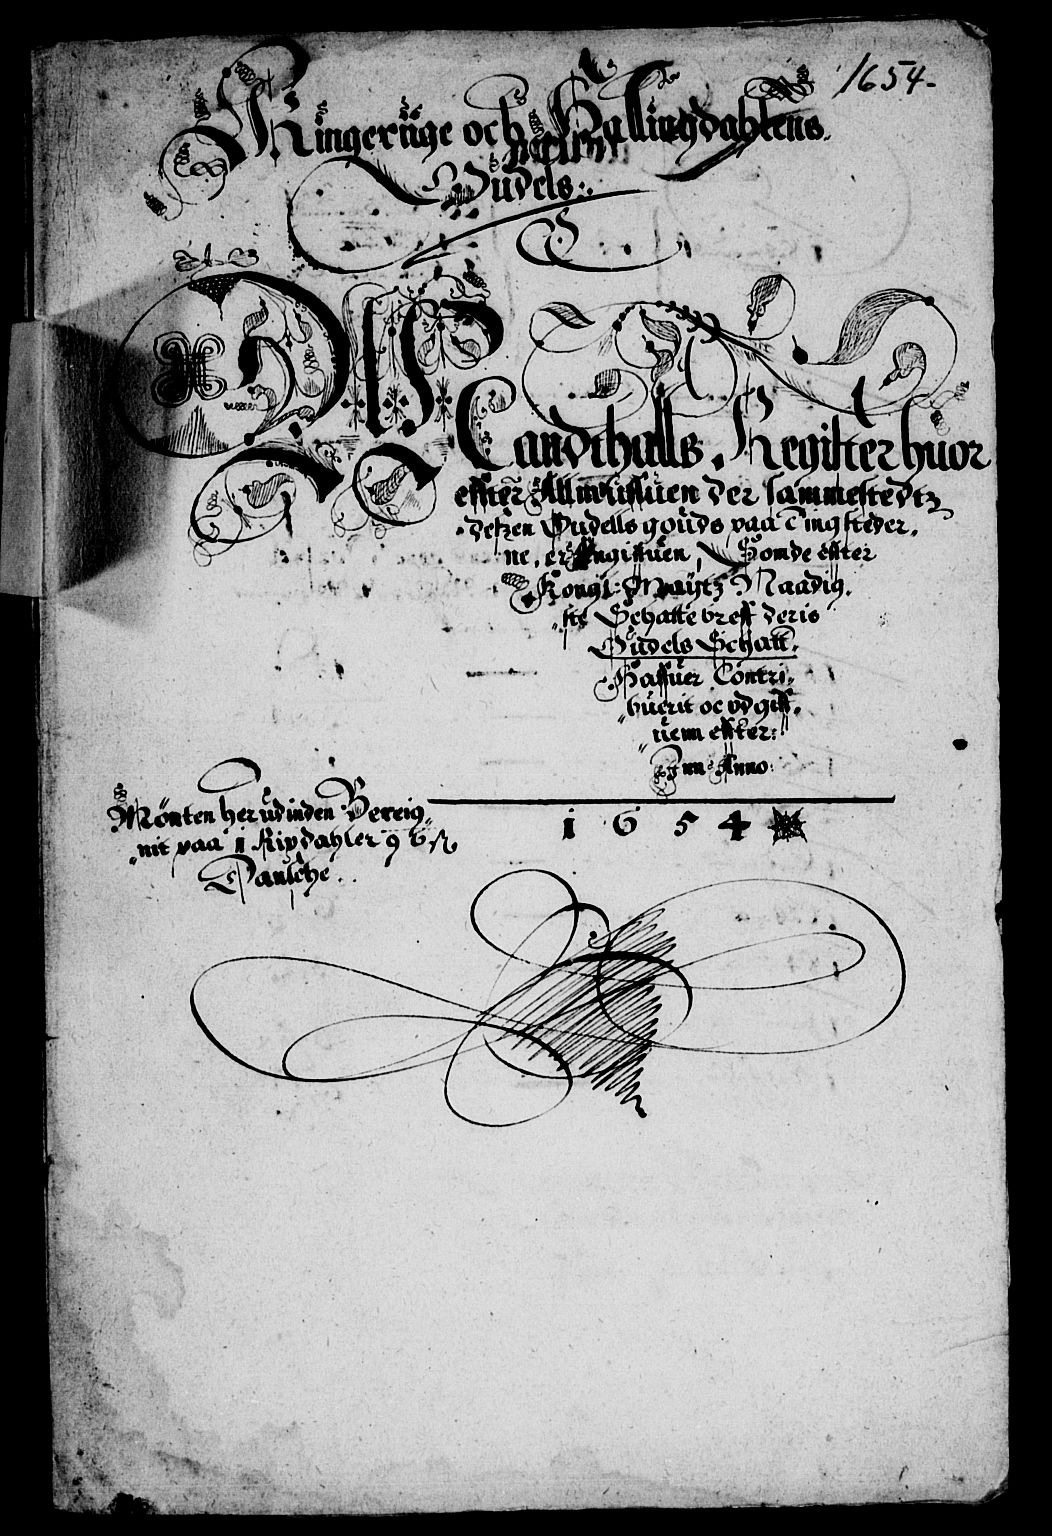 1654.
Ringerüge och Hallingdahlens
Oudels:
Mandthalls Register huor
effter Allmufluen der sammestedtz
Oudells gouds paa Tingsteder,
ne, er Angiffuen, Somde effter
Kongl: Maÿtz Naadig,
ste Schatte breff deris
Oudels Schatt,
Haffuer Contri,
buerit oc vdgiff,
uenn effter:
Inn Anno:
1654
Mönten her udinden Bereig,
nit paa 1 Ripdahler 96 ß
Dansche.